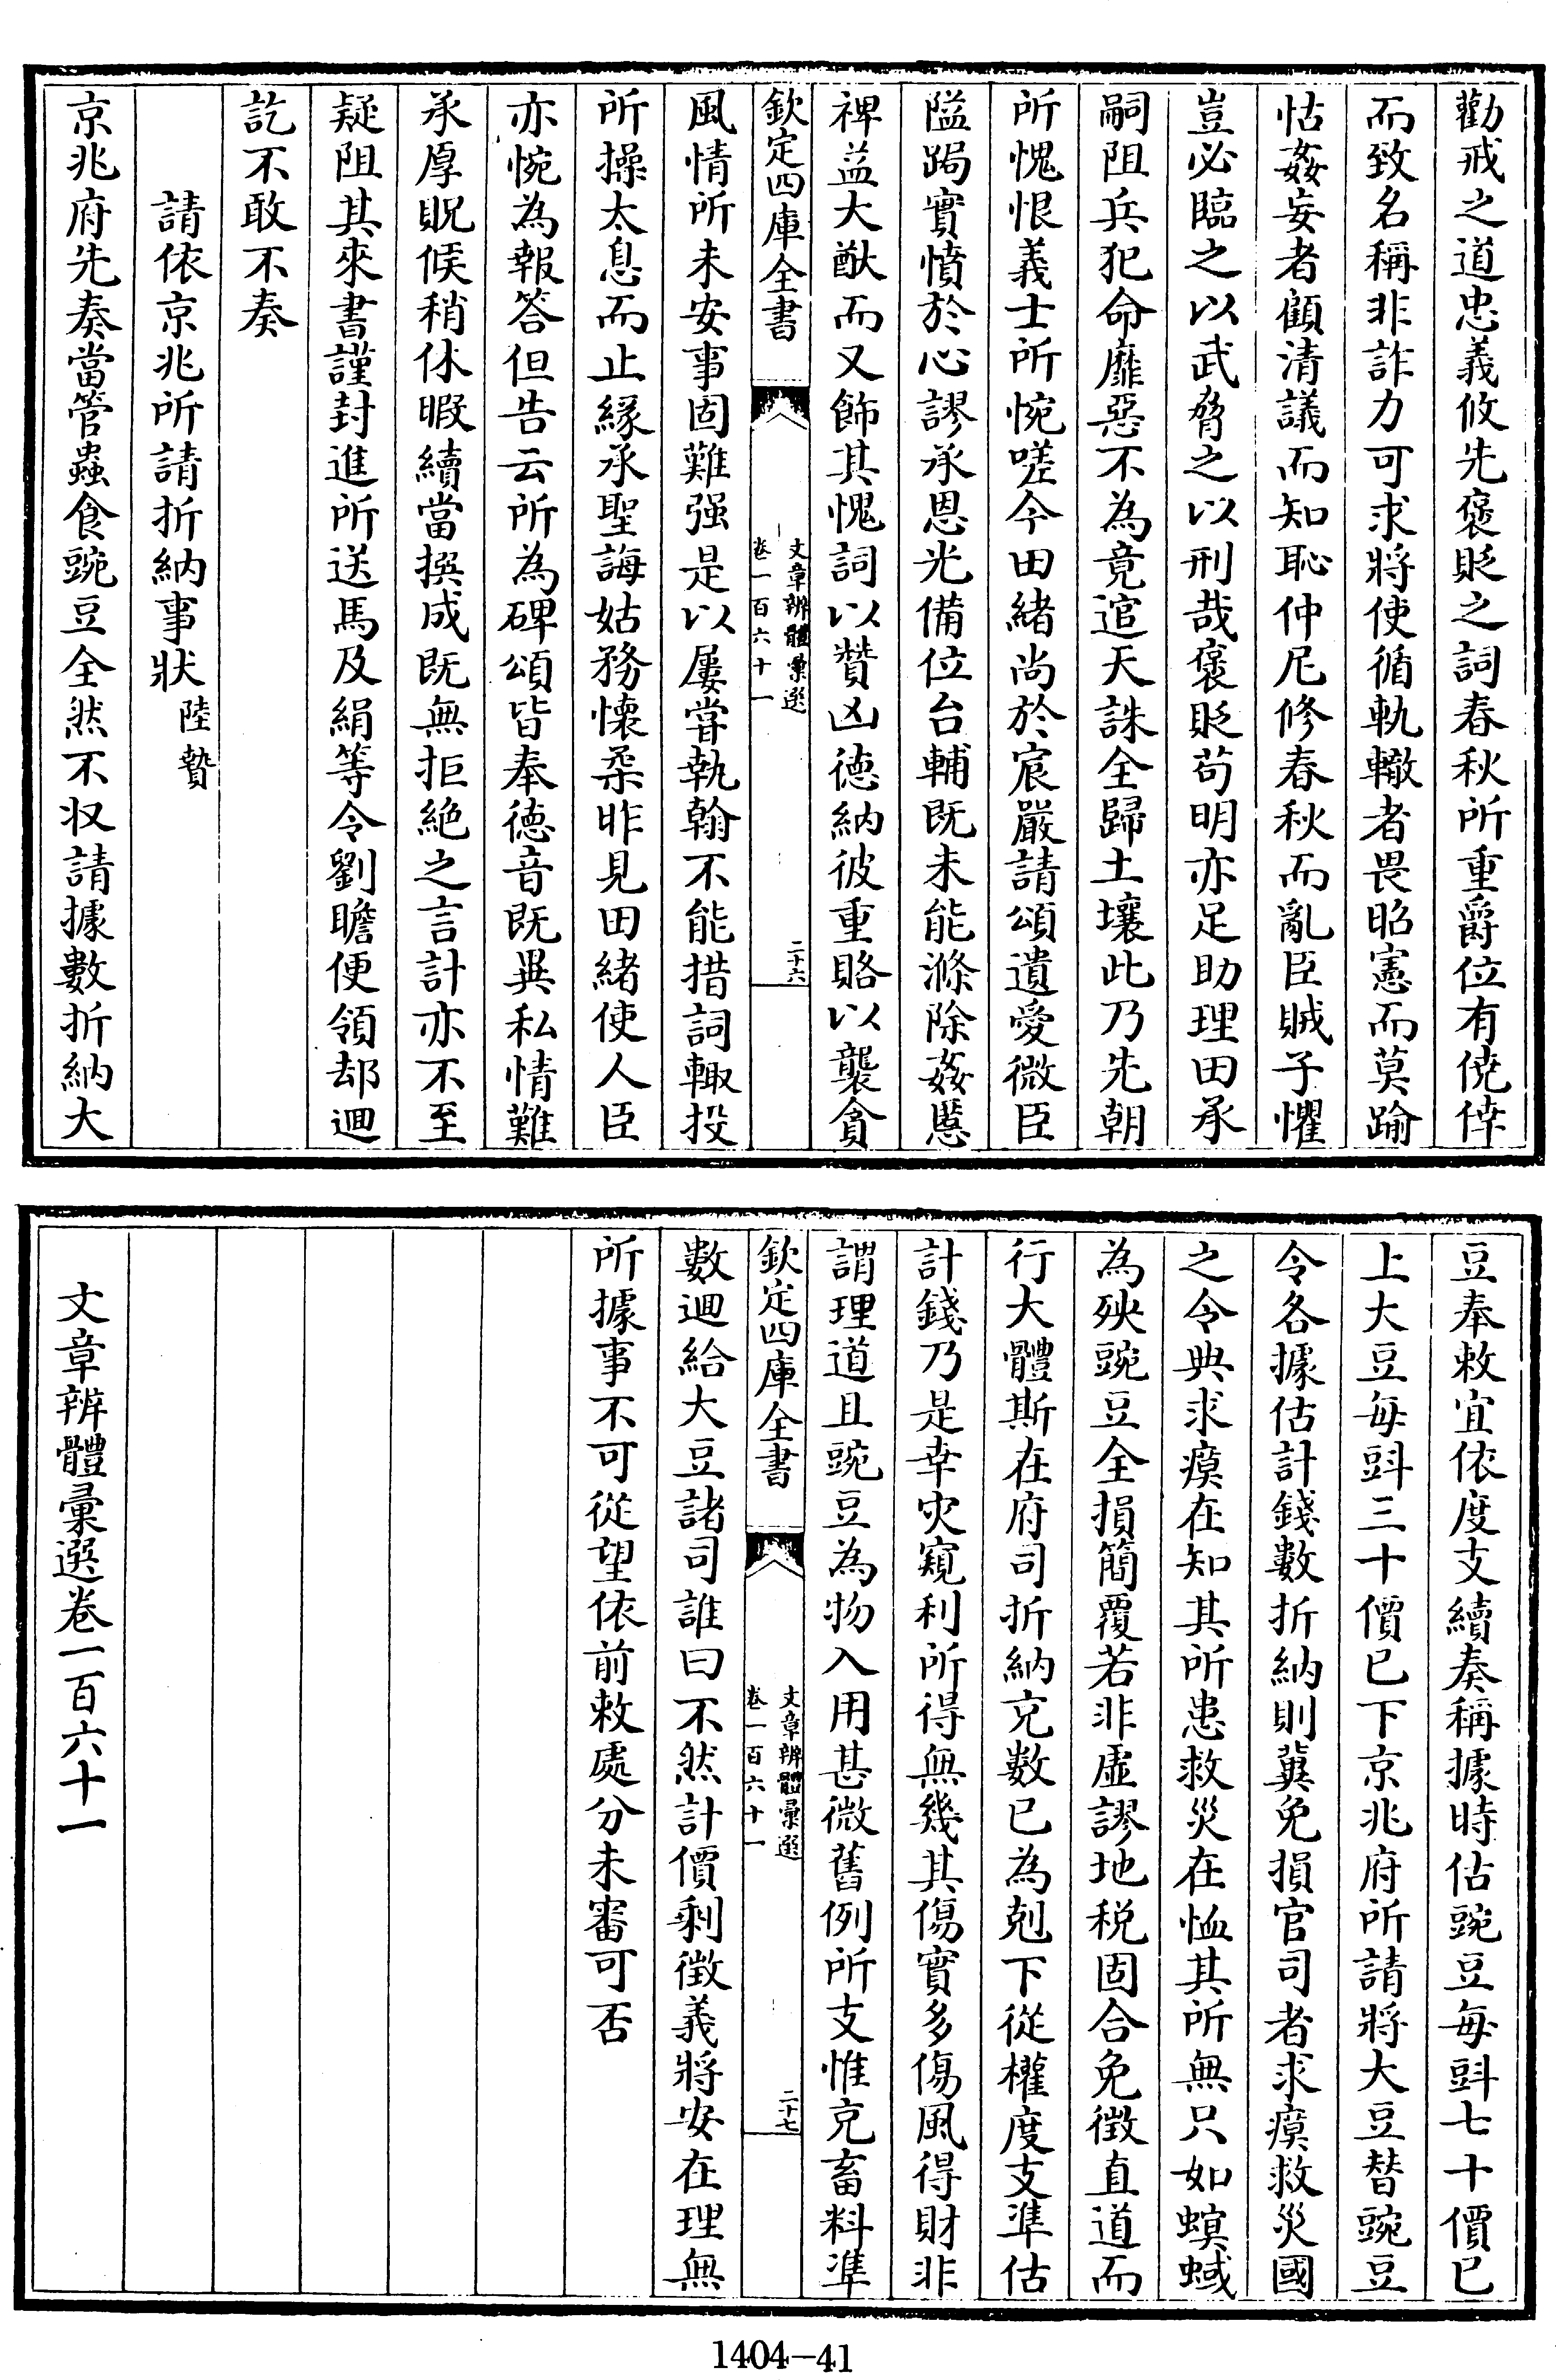 勸戒之道忠義攸先褒貶之詞春秋所重爵位有僥倖
而致名稱非詐力可求將使循軌轍者畏昭憲而莫踰
怙姦妄者顧清議而知恥仲尼修春秋而亂臣賊子懼
豈必臨之以武脅之以刑哉褒貶苟明亦足助理田承
嗣阻兵犯命靡惡不為竟逭天誅全歸土壤此乃先朝
所愧恨義士所惋嗟今田緒尚於宸嚴請頌遺愛微臣
隘跼實憤於心謬承恩光備位台輔既未能滌除姦慝
裨益大猷而又飾其愧詞以贊凶德納彼重賂以襲貪
欽定四庫全書
文章辨體彙選
卷一百六十一
二十六
風情所未安事固難强是以屢嘗執翰不能措詞輙投
所操太息而止縁承聖誨姑務懷柔昨見田緒使人臣
亦惋為報答但告云所為碑頌皆奉德音既異私情難
承厚貺候稍休暇續當撰成既無拒絶之言計亦不至
疑阻其來書謹封進所送馬及絹等令劉瞻便領却迴
訖不敢不奏
請依京兆所請折納事狀 陸贄
京兆府先奏當管蟲食豌豆全然不収請據數折納大
豆奉敕宜依度支續奏稱據時估豌豆每㪷七十價已
上大豆每㪷三十價已下京兆府所請將大豆替豌豆
令各據估計錢數折納則冀免損官司者求瘼救災國
之令典求瘼在知其所患救災在恤其所無只如螟蜮
為殃豌豆全損簡覆若非虛謬地税固合免徵直道而
行大體斯在府司折納充數已為剋下從權度支準估
計錢乃是幸灾窺利所得無幾其傷實多傷風得財非
謂理道且豌豆為物入用甚微舊例所支惟充畜料準
欽定四庫全書
文章辨體彙選
卷一百六十一
二十七
數迴給大豆諸司誰曰不然計價剩徵義將安在理無
所據事不可從望依前敕處分未審可否
文章辨體彙選卷一百六十一
1404-41